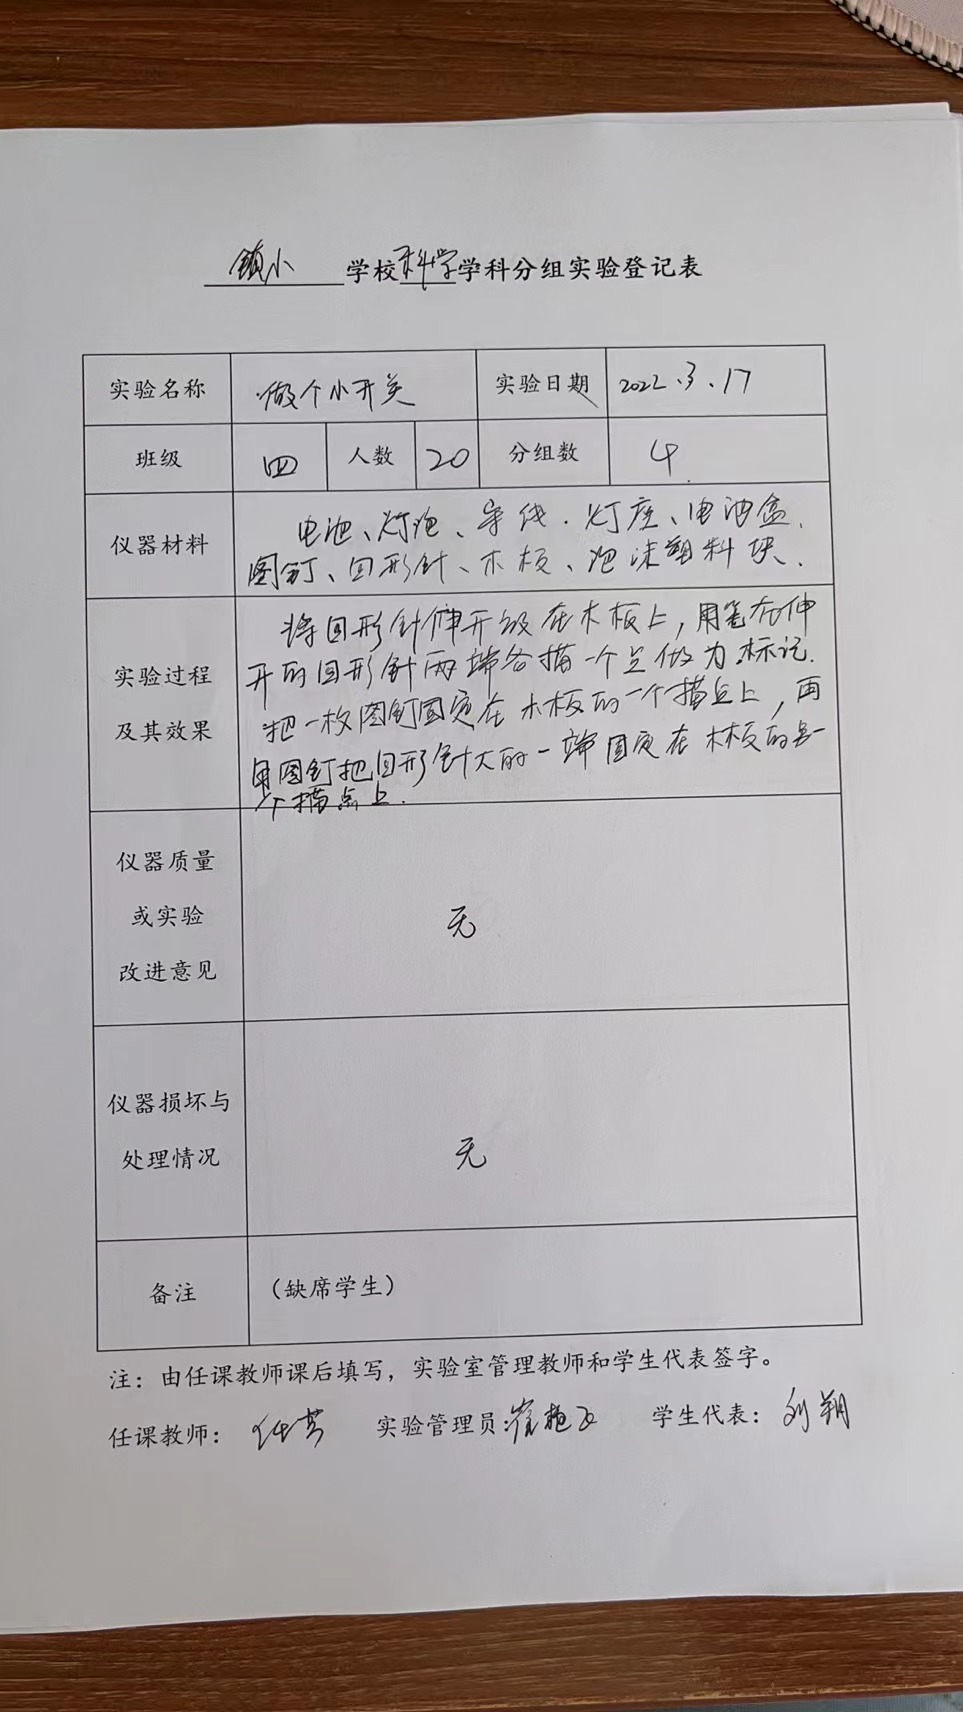 镇小 学校科学学科分组实验登记表
实验名称 做个小开关 实验日期 2022.3.17
班级 四 人数 20 分组数 4
仪器材料
电池、灯泡、导线、灯座、电池盒、
图钉、回形针、木板、泡沫塑料块、
实验过程
及其效果
将回形针伸开放在木板上，用笔在伸
开的回形针两端各描一个点做为标记.
把一枚图钉固定在木板的一个描点上，再
用图钉把回形针大的一端固定在木板的另一
个描点上.
仪器质量
或实验
改进意见
无
仪器损坏与
处理情况
无
备注 （缺席学生）
注：由任课教师课后填写，实验室管理教师和学生代表签字。
任课教师： 任芳 实验管理员： 学生代表：刘翔